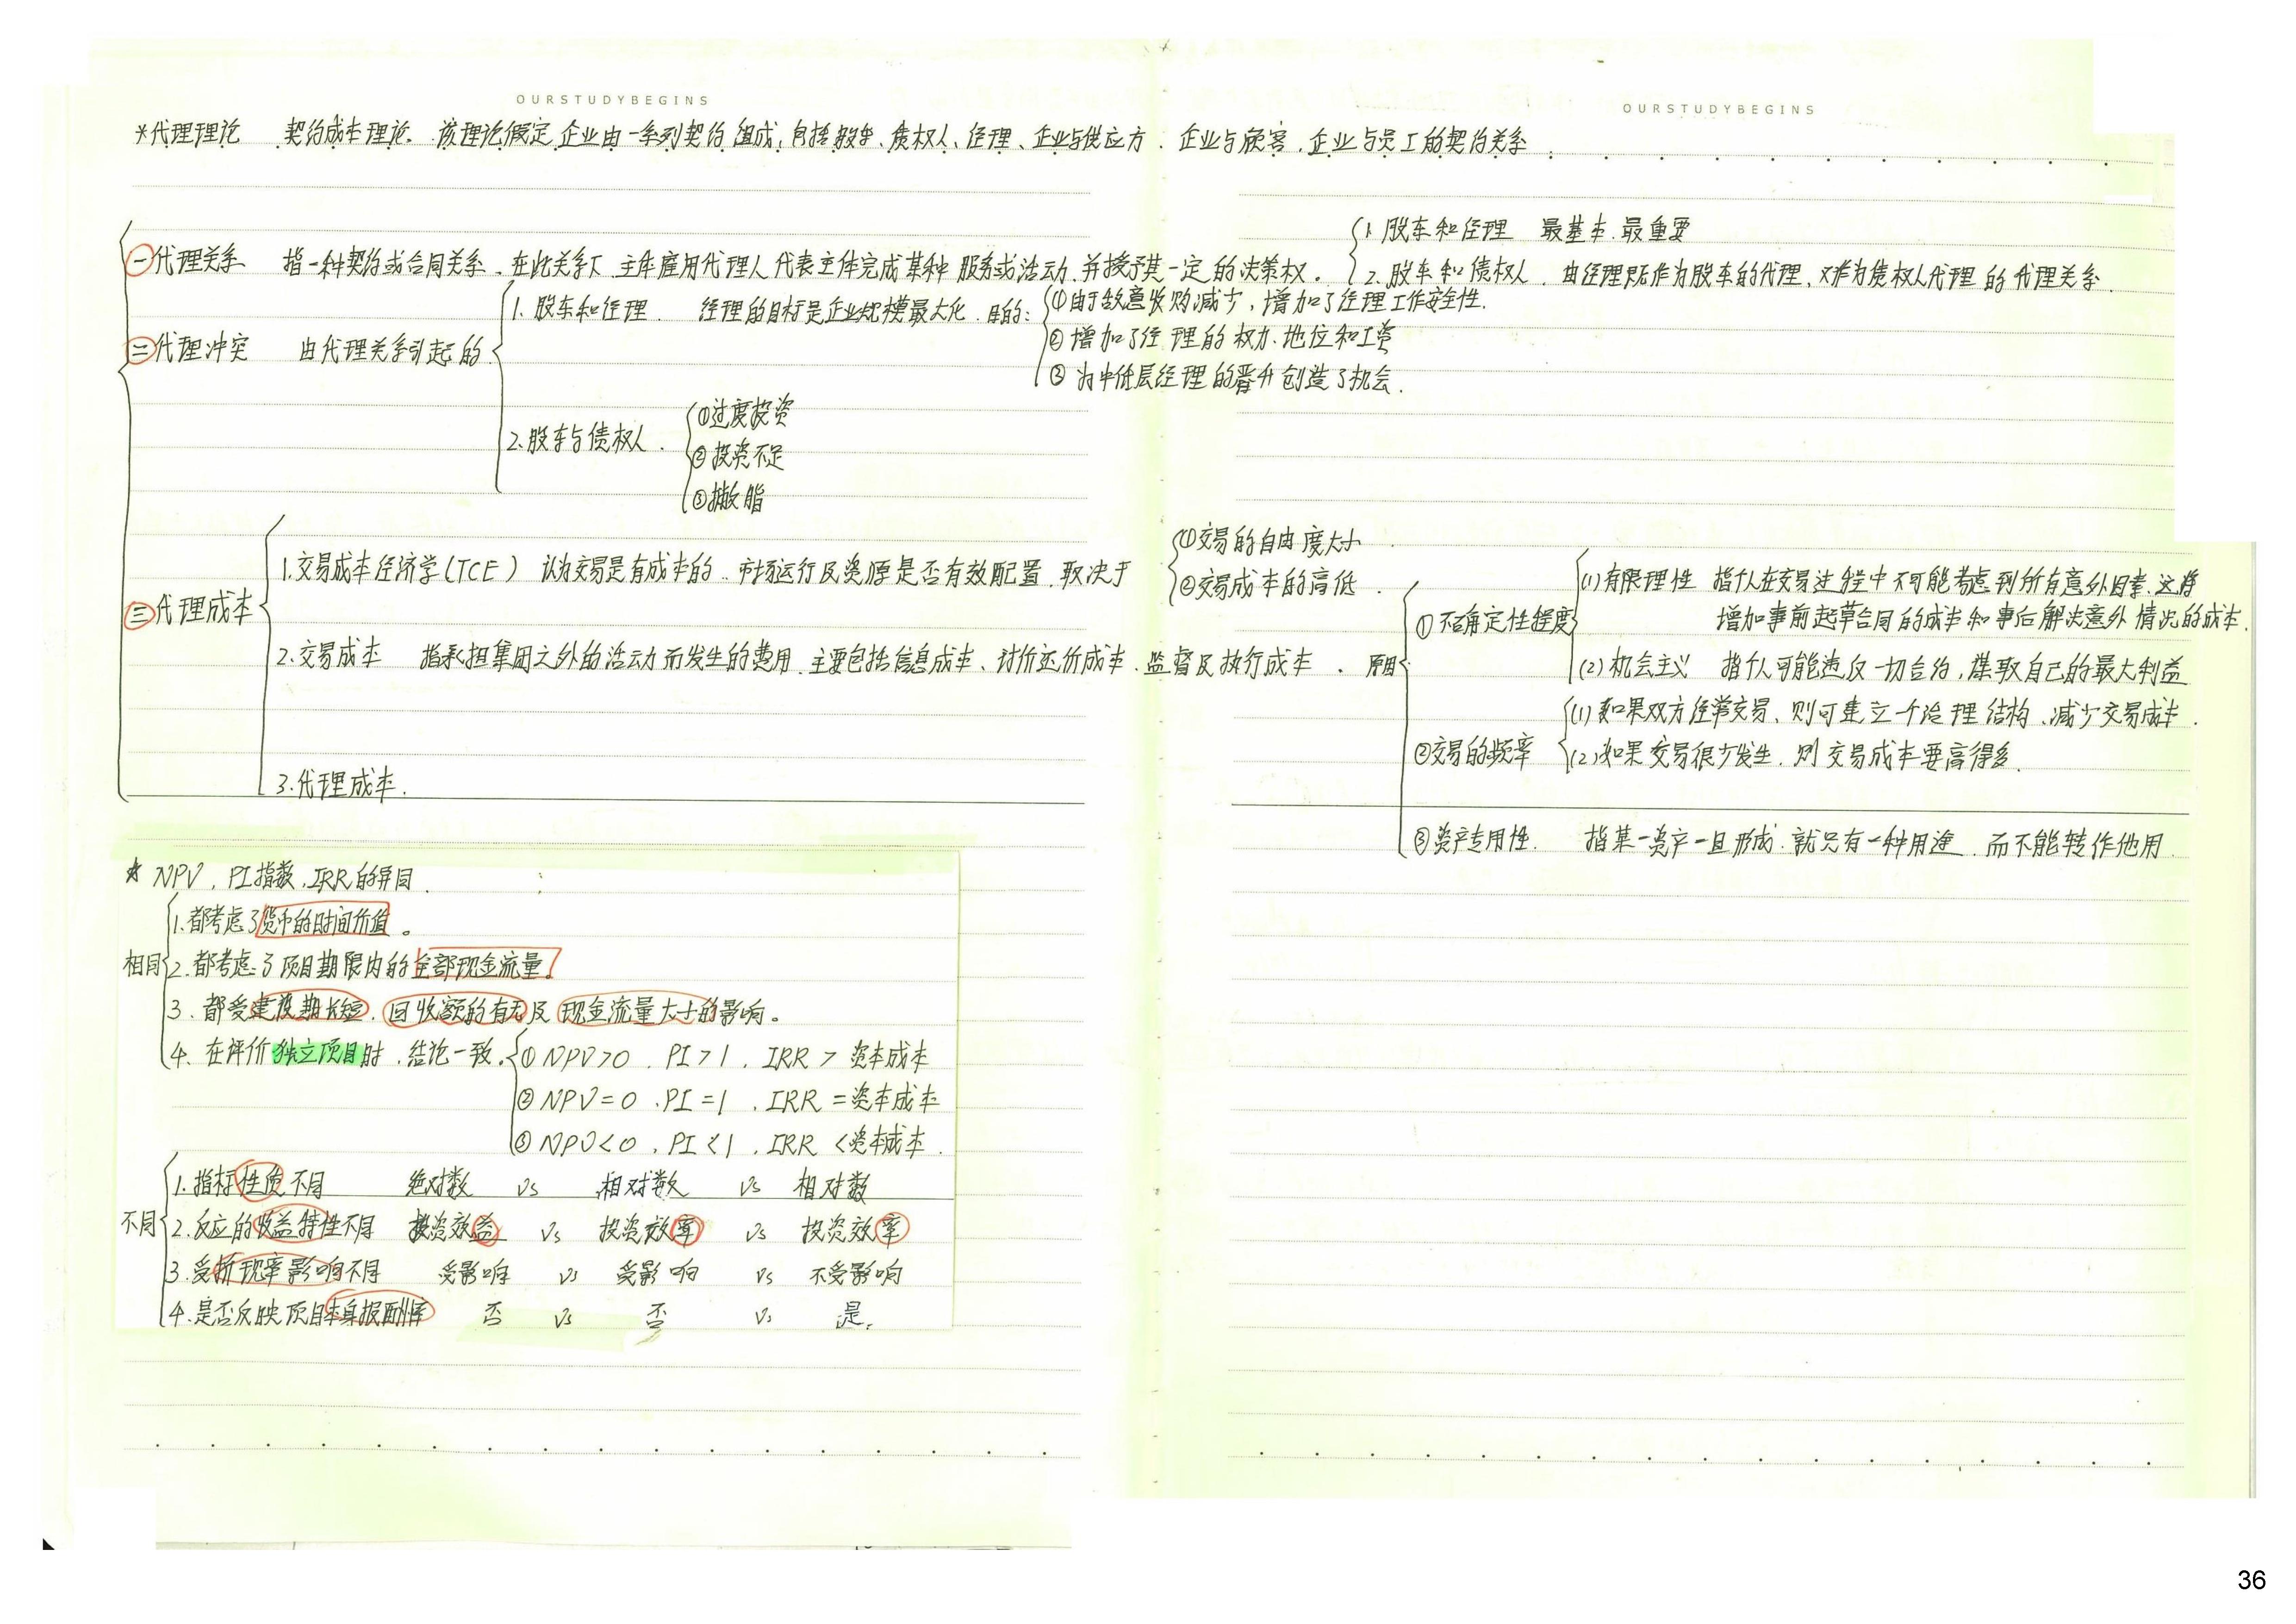 OURSTUDYBEGINS
OURSTUDYBEGINS
*代理理论 契约成本理论. 该理论假定企业由一系列契约组成,包括股东、债权人、经理、企业与供应方、企业与顾客、企业与员工的契约关系.
㊀代理关系 指一种契约或合同关系,在此关系下,主体雇用代理人代表主体完成某种服务或活动,并授予其一定的决策权.
1. 股东和经理 最基本.最重要
2. 股东和债权人. 由经理既作为股东的代理,又作为债权人代理的代理关系.
㊁代理冲突 由代理关系引起的
1. 股东和经理. 经理的目标是企业规模最大化.目的:
①由于敌意收购减少,增加了经理工作安全性.
②增加了经理的权力、地位和工资
③为中低层经理的晋升创造了机会.
2. 股东与债权人.
①过度投资
②投资不足
③撇脂
㊂代理成本
1.交易成本经济学(TCE) 认为交易是有成本的.市场运行及资源是否有效配置,取决于
①交易的自由度大小
②交易成本的高低.
2.交易成本 指承担集团之外的活动而发生的费用.主要包括信息成本、讨价还价成本、监督及执行成本. 原因
①不确定性程度
(1)有限理性 指人在交易过程中不可能考虑到所有意外因素.这将
增加事前起草合同的成本和事后解决意外情况的成本.
(2)机会主义 指人可能违反一切合约,谋取自己的最大利益
②交易的频率
(1)如果双方经常交易、则可建立一个治理结构、减少交易成本.
(2)如果交易很少发生.则交易成本要高得多.
③资产专用性. 指某一资产一旦形成.就只有一种用途.而不能转作他用.
3.代理成本.
☆ NPV,PI指数,IRR的异同.
相同
1.都考虑了货币的时间价值。
2.都考虑了项目期限内的全部现金流量.
3.都受建设期长短、回收额的有无及现金流量大小的影响。
4.在评价独立项目时.结论一致.
①NPV>0 . PI>1 . IRR > 资本成本
②NPV=0 . PI=1 . IRR =资本成本
③NPV<0 . PI<1 . IRR <资本成本.
不同
1.指标性质不同 绝对数 vs 相对数 vs 相对数
2.反应的收益特性不同 投资效益 vs 投资效率 vs 投资效率
3.受折现率影响不同 受影响 vs 受影响 vs 不受影响
4.是否反映项目本身报酬率 否 vs 否 vs 是.
36